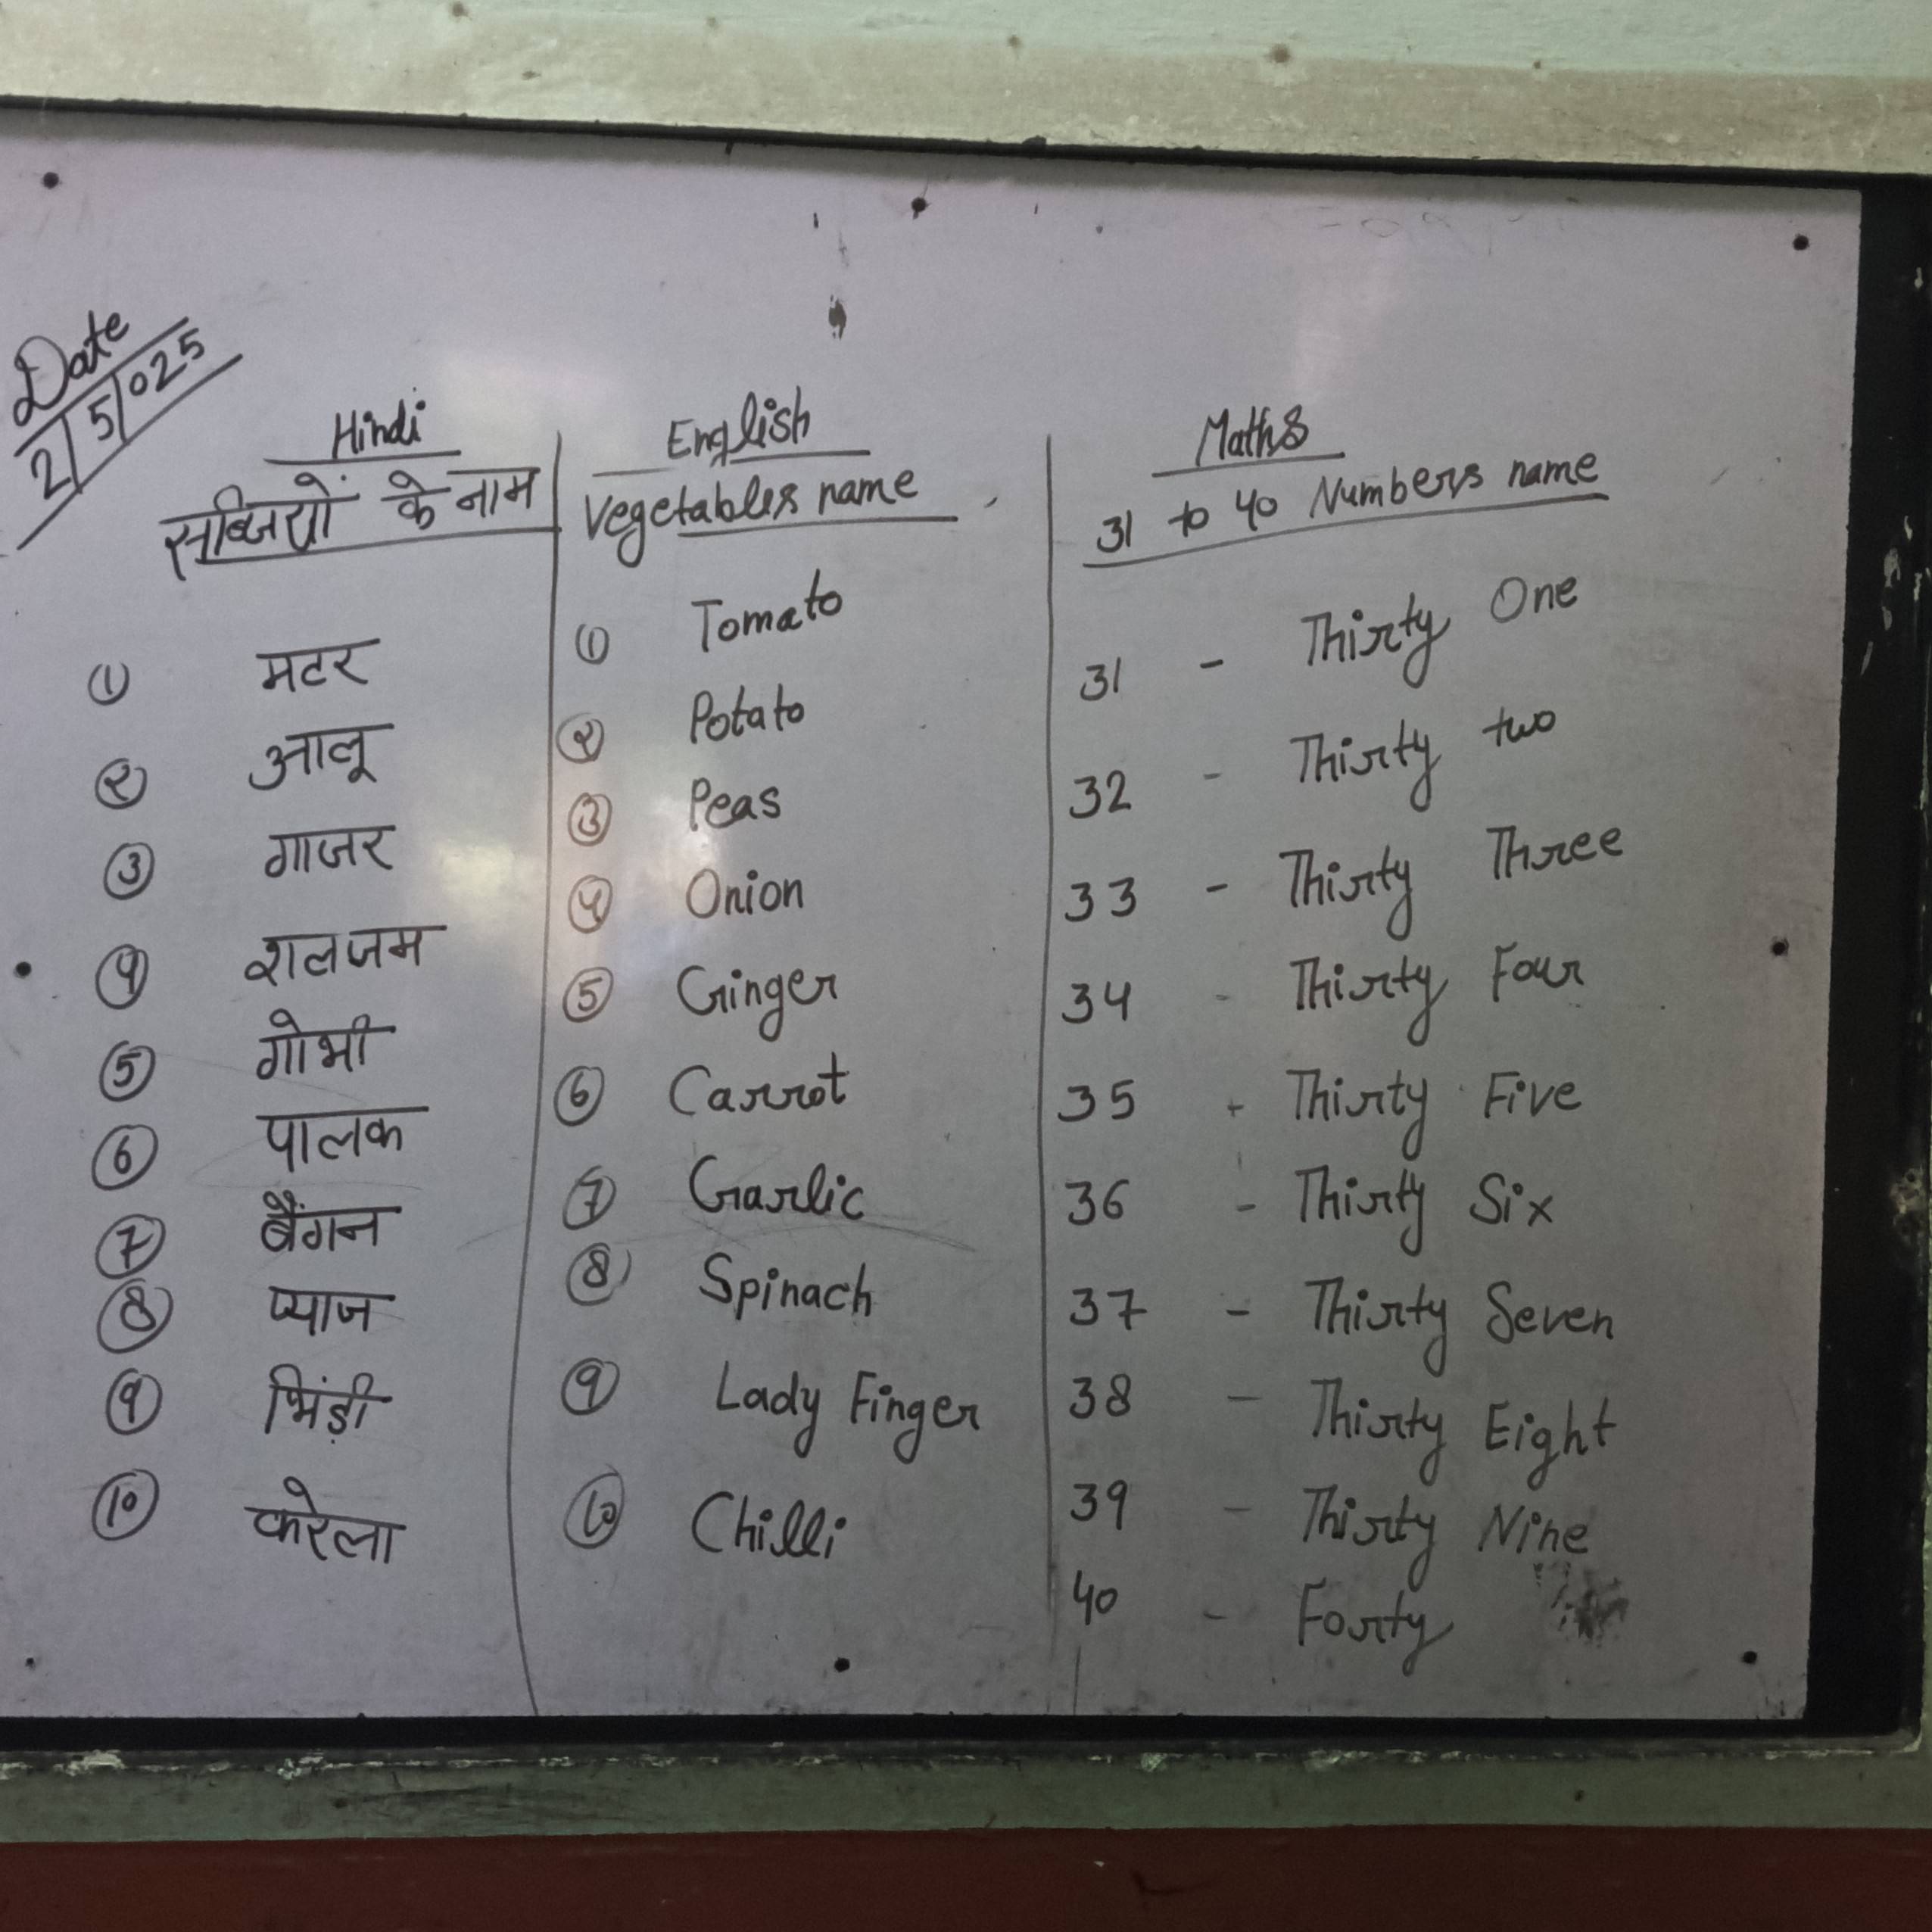 Date
2/5/025
Hindi
सब्जियों के नाम
① मटर
② आलू
③ गाजर
④ शलजम
⑤ गोभी
⑥ पालक
⑦ बैंगन
⑧ प्याज
⑨ भिंड़ी
⑩ करेला
English
Vegetables name
① Tomato
② Potato
③ Peas
④ Onion
⑤ Ginger
⑥ Carrot
⑦ Garlic
⑧ Spinach
⑨ Lady Finger
⑩ Chilli
Maths
31 to 40 Numbers name
31 - Thirty One
32 - Thirty two
33 - Thirty Three
34 - Thirty Four
35 - Thirty Five
36 - Thirty Six
37 - Thirty Seven
38 - Thirty Eight
39 - Thirty Nine
40 - Forty